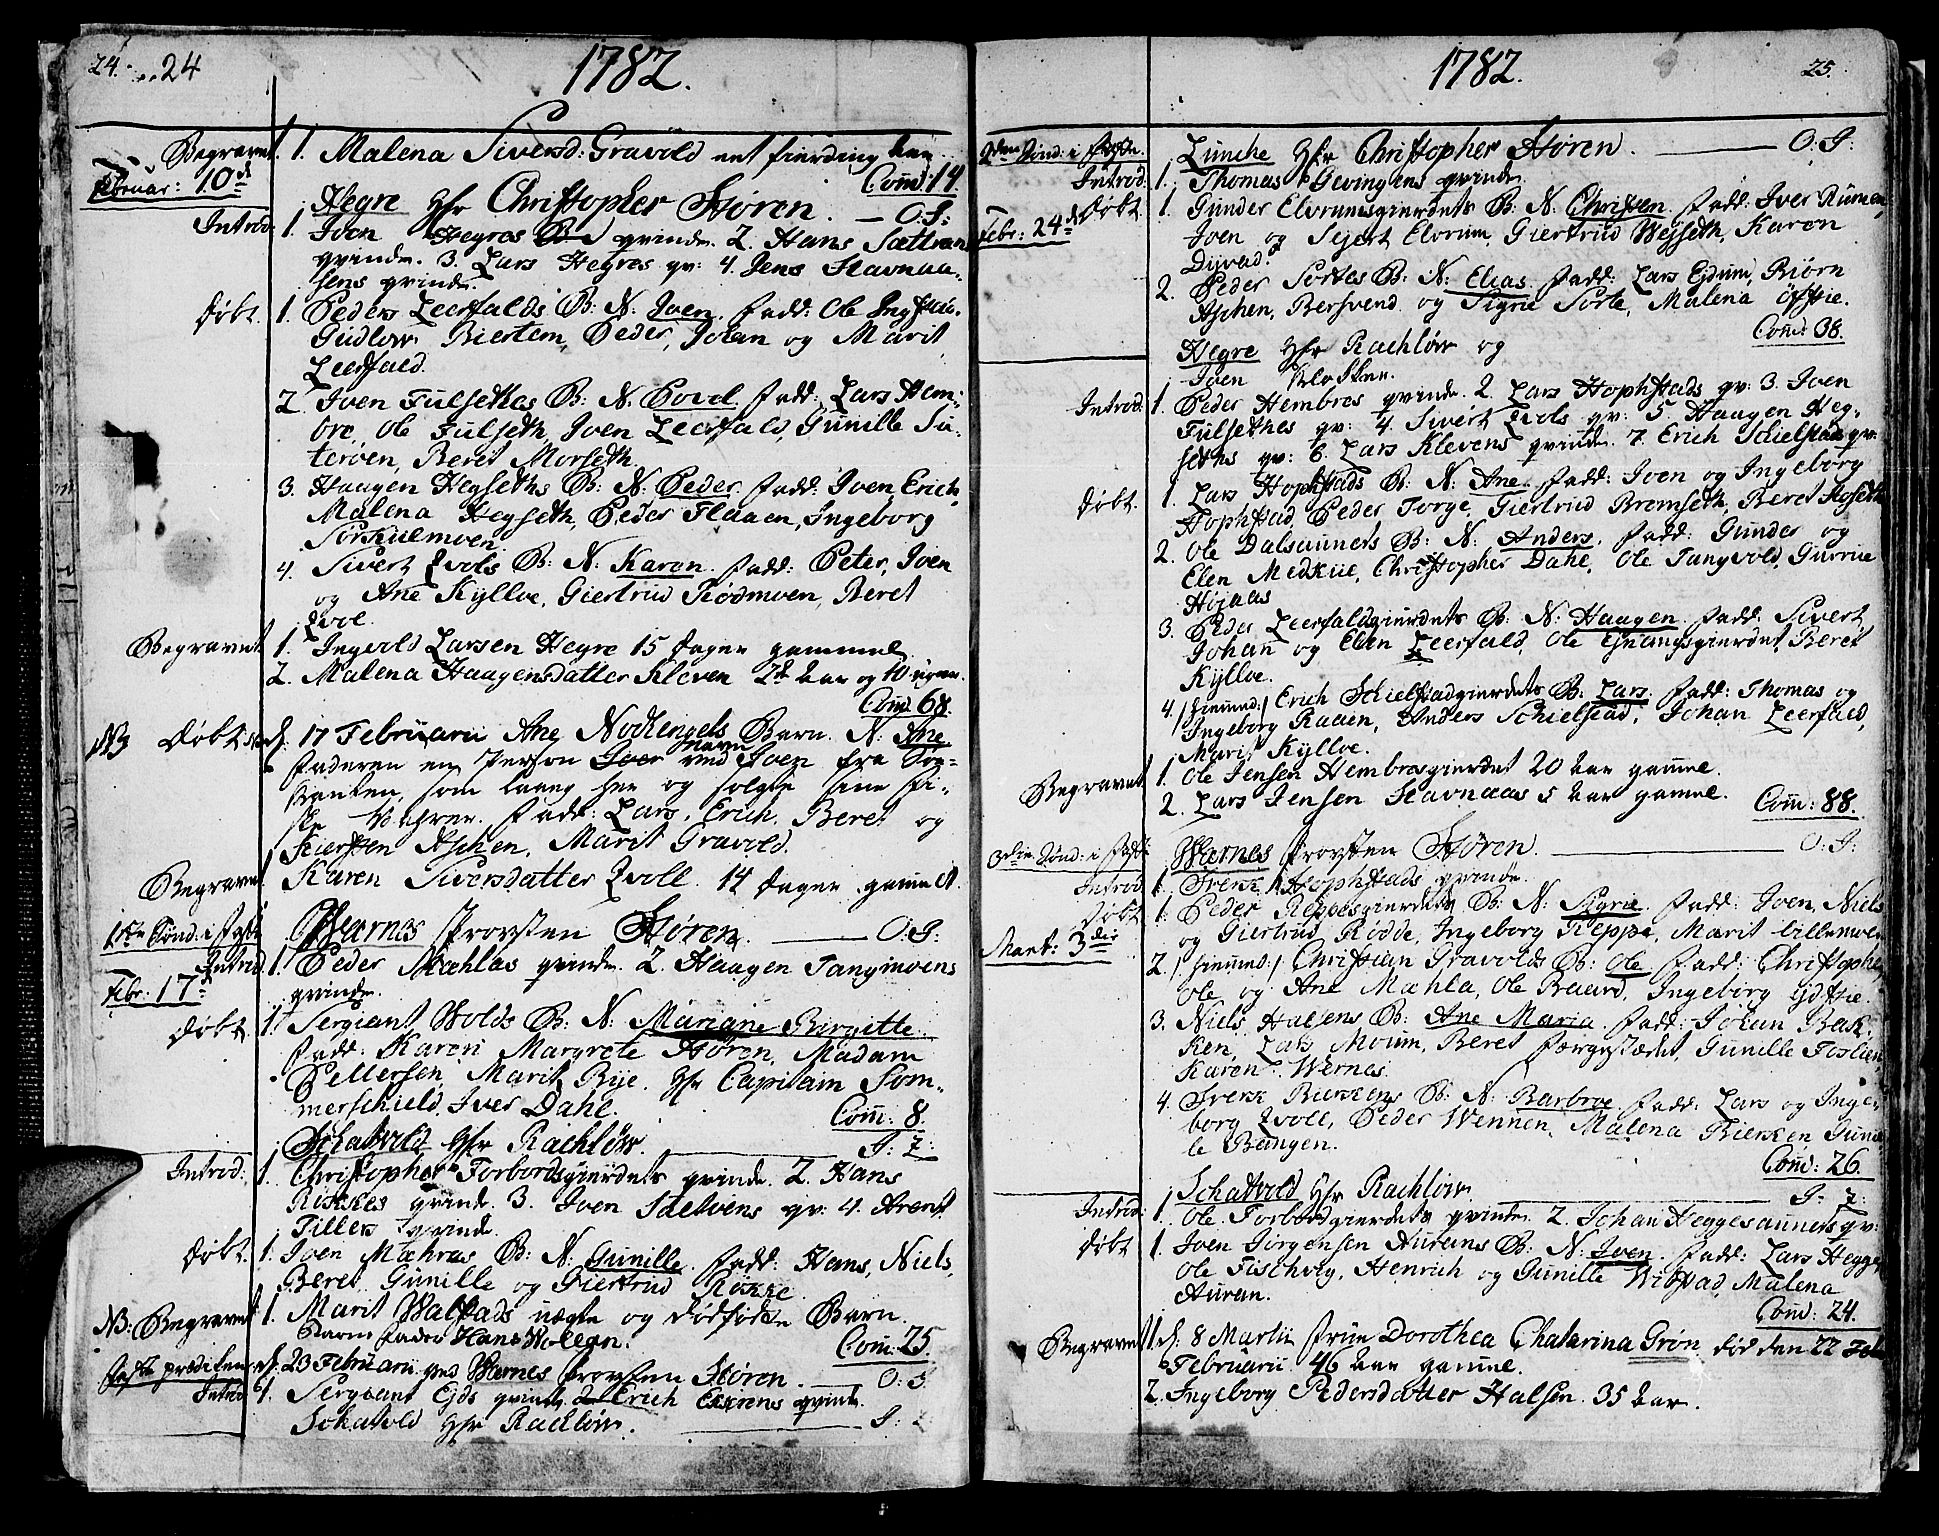 24. 24 1782.
Begravet. 1. Malena Siversd: Gravold et fierding aar
Com̄: 14.
Februar: 10de Hegre Hr Christopher Støren. — O: S:
Introd: 1. Joen Hegres qvinde. 2. Hans Sættran
qvinde. 3. Lars Hegres qv: 4. Jens Stavnaa-
sens qvinde.
Døbt. 1. Peders Leerfalds B: N. Joen. fadd: Ole
Gudlow Biertem, Peder, Johan og Marit
Leerfald.
2. Joen Fulsethes B: N. Povel fadd: Lars Hem-
bre, Ole Fulseth, Joen Leerfald, Gunille Su-
terøen, Beret Morseth
3. Haagen Hegseths B: N. Peder. fadd: Joen, Erich
Malena Hegseth, Peder Flaaen, Ingeborg
Sørkilmoen
4. Sivert Qvols B: N: Karen. fadd: Peter, Joen
og Ane Kylloe, Giertrud Rødmoen, Beret
Qvol.
Begravet 1. Ingvold Larsen Hegre 15 dager gammel.
2. Malena Haagensdatter Kleven 2de aar og 10 uger.
Com̄: 68.
NB Døbt d. 17 Februarii Ane Nochengels Barn. N. Ane
faderen en Person ved navn Joen fra Søe-
kanten, som laang her og solgte sine fi-
ske Vahrer. fadd: Lars, Erich, Beret og
Kiersten Aschen, Marit Gravold.
Begravet 1. Karen Siversdatter Qvoll. 14 dager gammel.
1ste Sønd: i faste Wærnes Provsten Støren. — O: S:
Introd. 1. Peder Mæhlas qvinde. 2. Haagen Tangmoens
Febr: 17de qvinde.
Døbt 1. Sergiant Wolds B: N: Mariane Birgitte.
fadd: Karen Margrete Støren, Madam
Pettersen, Marit Rye. Hr Capitain Som-
merschield, Iver Dahl.
Com̄: 8.
Schatvold Hr Rachløw. S: 7:
Introd: 1. Christopher Forbordsgierdets qvinde. 2. Hans
Røkkes qvinde. 3. Joen Saltvens qv: 4. Arent
Tillers qvinde.
Døbt. 1. Joen Mæhras B: N: Gunille. fadd: Hans, Niels,
Beret Gunille og Giertrud Røkke.
NB: Begravet 1. Marit Walstads uægte og dødfødte Barn.
Barne fader Hans Wollan. Com̄: 25.
Faste prædiken d. 23 Februarii ved Wærnes Provsten Støren. — O: S
Introd 1. Sergeant Eyds qvinde 2 Erich Ekrens qvinde.
Schatvold Hr Rachløw. S:
1782. 25.
2den Sønd: i faste. Lunche Hr Christopher Støren. — O: S:
Introd: 1. Thomas Gevingens qvinde.
Døbt 1. Gunder Elvrumsgierdets B: N. Christen. fadd: Iver Rumen,
Febr: 24de Joen og Sejert Elvrum, Giertrud Wejseth, Karen
Dyvad.
2. Peder Sortes B: N: Elias. fadd: Lars Ejdum, Biørn
Aschen, Bersvend og Sigrie Sorte, Malena Øfstie.
Com̄: 38.
Hegre Hr Rachløw og
Joen Klokker.
Introd: 1. Peder Hembres qvinde 2. Lars Hophstads qv: 3. Joen
Fulsethes qv: 4. Sivert Qvols qv: 5. Haagen Heg-
seths qv: 6. Lars Klevens qvinde. 7. Erich Schielstad qv:
Døbt. 1. Lars Hophstads B: N: Ane. fadd: Joen og Ingeborg
Hophstad, Peder Torge, Giertrud Bremseth, Beret
2. Ole Dalsauners B: N: Anders. fadd: Gunder og
Elen Medkiie, Christopher Dahl, Ole Tangvold, Gurrue
Højaas
3. Peder Leerfaldsgierdets B: N: Haagen. fadd: Sivert,
Johan og Elen Leerfald, Ole Ejnangsgierdet, Beret
Kylloe.
4. /hiemmed:/ Erich Schielstadgierdets B: Lars. fadd: Thomas og
Ingeborg Raaen, Anders Schielstad, Johan Leerfald,
Marit Kylloe.
Begravet 1. Ole Jensen Hembresgierdet 20 aar gammel.
2. Lars Jensen Stavnaas 5 aar gammel. Com̄: 88.
3die Sønd: i faste Wærnes Provsten Støren. — O: S:
Introd 1. Svend Hophstads qvinde.
Døbt 1. Peder Reppesgierdets B: N: Sigrie. fadd: Joen, Niels
og Giertrud Rodde, Ingeborg Reppe, Marit Lillemoe
Mart: 3die 2. /hiemmed:/ Christian Gravolds B: Ole fadd: Christopher,
Ole og Ane Mæhla, Ole Braard, Ingeborg Ydstie.
3. Niels Halsens B: Ane Maria. fadd: Johan Bak-
ken, Lars Moum, Beret Færgestædet, Gunille Foslien
Karen Wernes.
4. Svend Bierkens B: N: Barbroe fadd: Lars og Inge-
borg Qvoll, Peder Wennen, Malena Bierken Gunil-
le Bangen.
Com̄: 26.
Schatvold Hr Rachløw. — S: 7:
Introd: 1. Ole Forbordgierdets qvinde. 2. Johan Heggesauners qv:
Døbt 1. Joen Jørgensen Aurans B: N: Joen. fadd: Lars Hegge,
Ole Fischvig, Henrich og Gunille Widstad, Malena
Auran.
Com̄: 24.
Begravet 1. d. 8 Martii Frue Dorothea Chatarina Grøn død den 22
Februarii 46 aar gammel.
2. Ingeborg Pedersdatter Halsen. 35 aar.